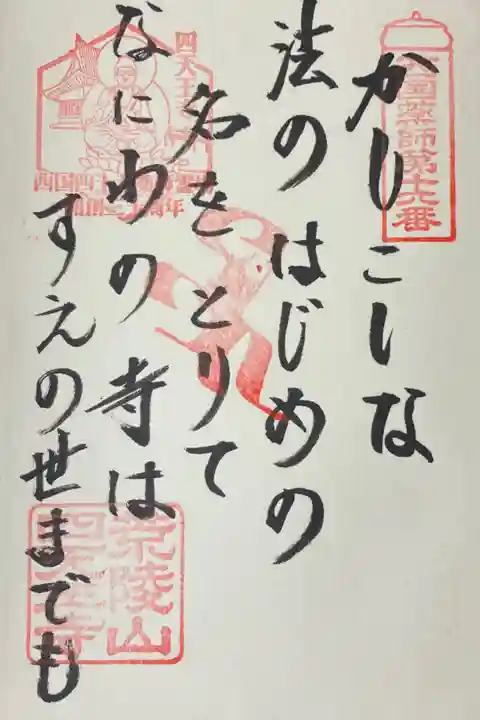 かしこしな
法のはじめの
名をとりて
なにわの寺は
すえの世までも
西国薬師第十六番
四天王寺
荒陵山
四天王寺